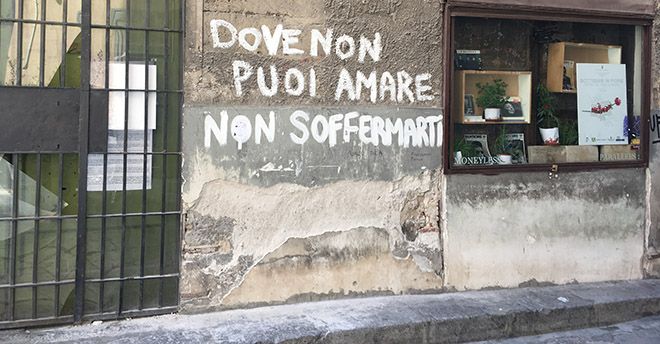 DOVE NON
PUOI AMARE
NON SOFFERMARTI
MONEYLESS